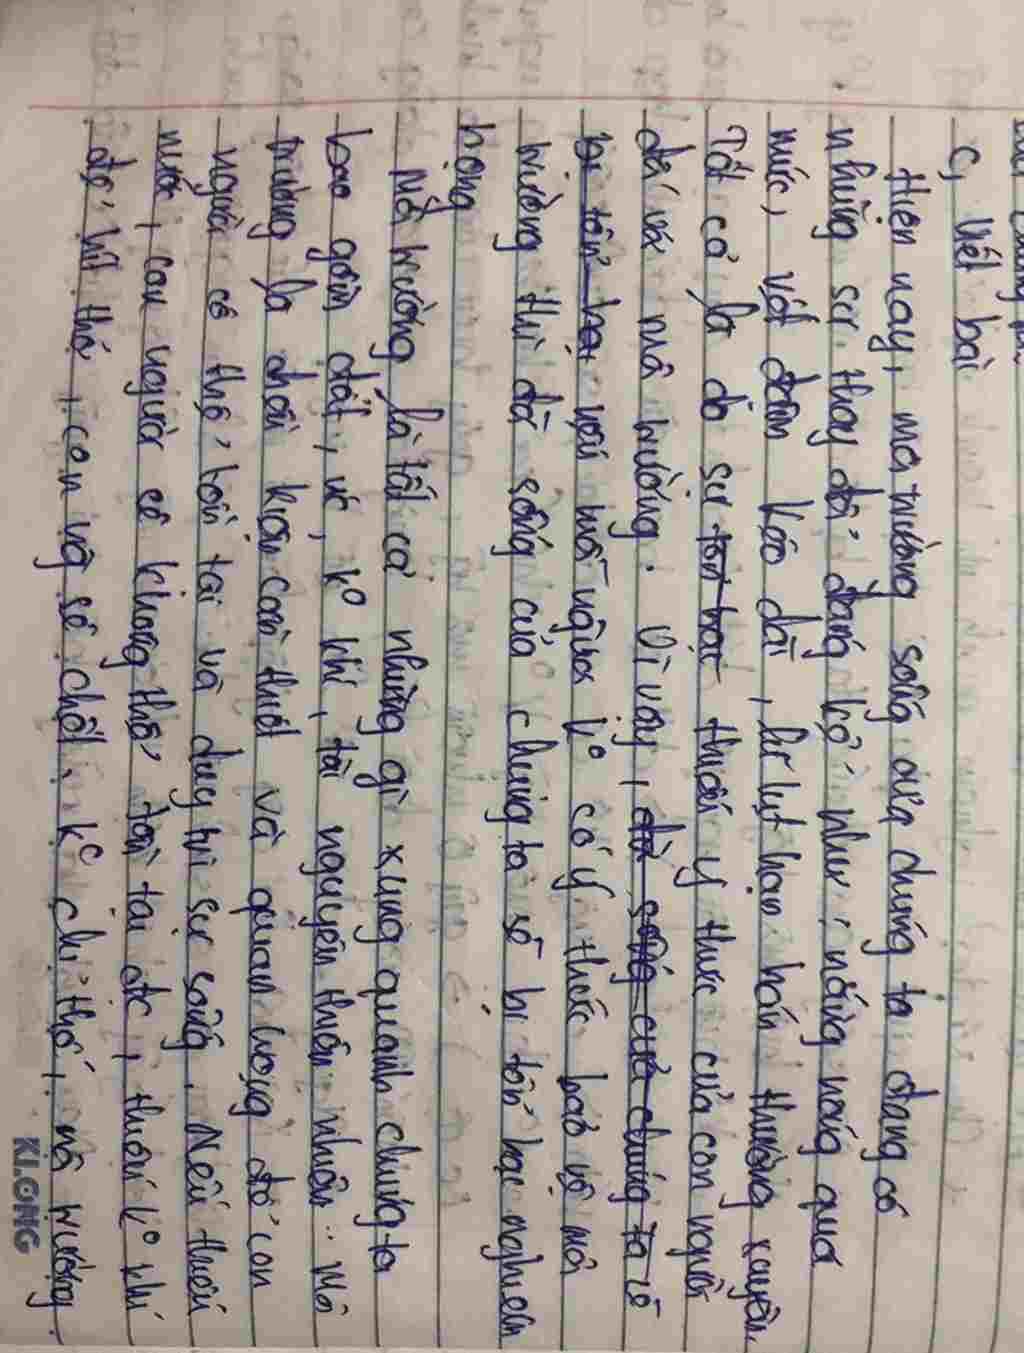 c, Viết bài
Hiện nay, môi trường sống của chúng ta đang có
những sự thay đổi đáng kể như: nóng nóng quá
mức, vót đâm kéo dài, lũ lụt hạn hán thường xuyên.
Tất cả là do sự tổn hại thiếu ý thức của con người
đối với môi trường. Vì vậy, đời sống của chúng ta sẽ
bị tổn hại nếu mỗi người ko có ý thức bảo vệ môi
trường thì đời sống của chúng ta sẽ bị tổn hại nghiêm
trọng
Môi trường là tất cả những gì xung quanh chúng ta
bao gồm đất, nước, ko khí, tài nguyên thiên nhiên.. Môi
trường là điều kiện cần thiết và quan trọng để con
người có thể tồn tại và duy trì sự sống. Nếu thiếu
nước, con người sẽ không thể tồn tại đc, thiếu ko khí
để hít thở, con ng sẽ chết. ko chỉ thế, môi trường
KI.ONG